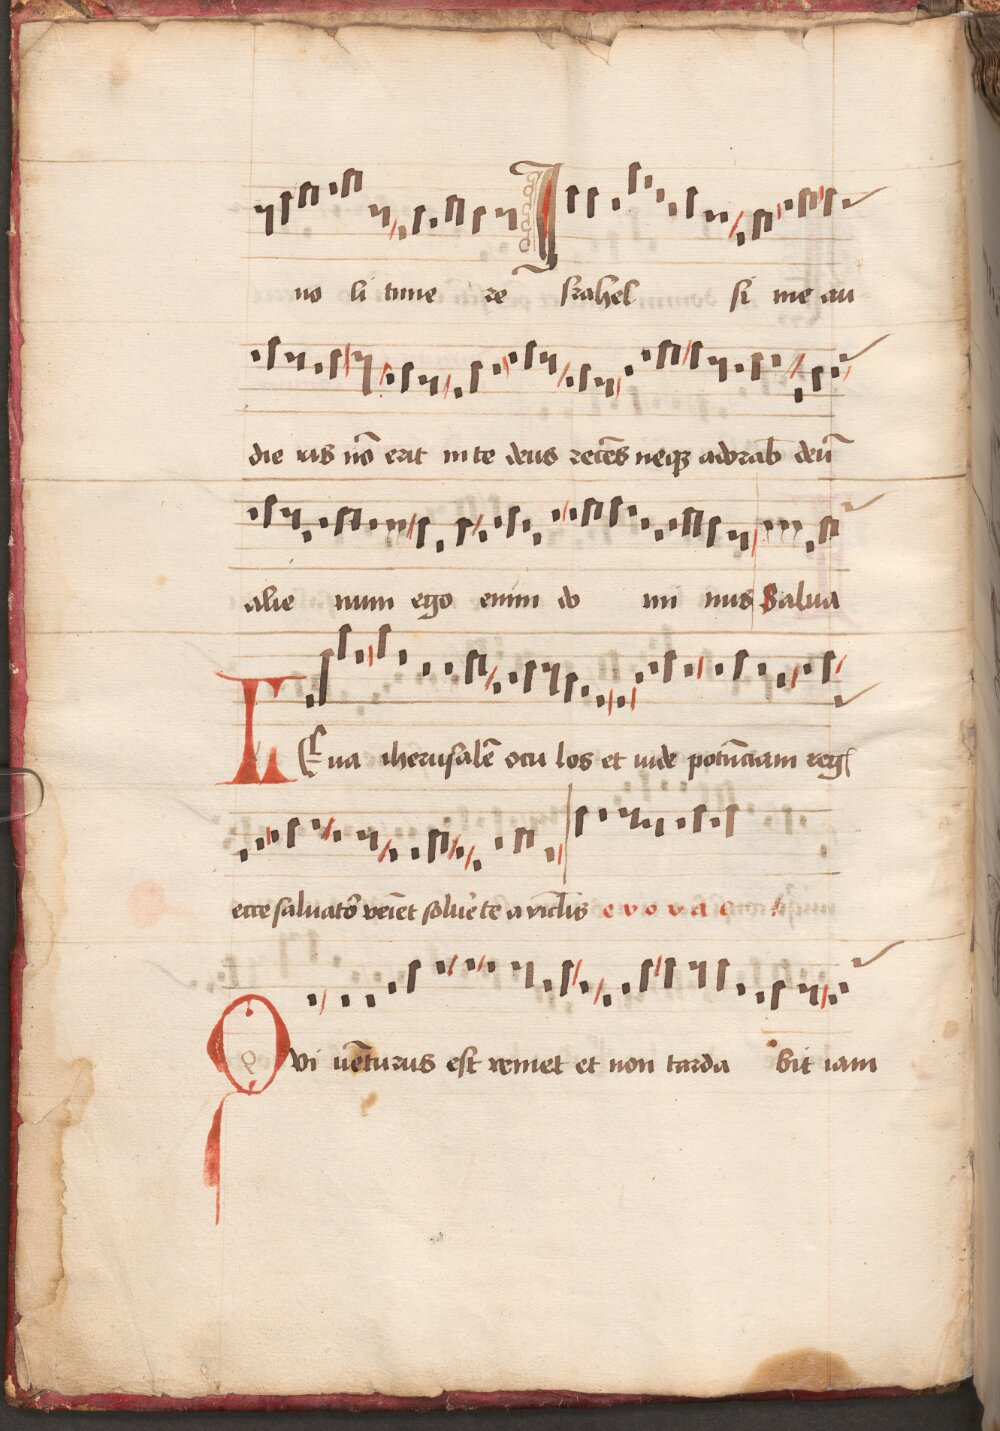 no li time re Israhel si me au
die ris nō erit in te deus recēs neqꝫ adorab deū
alie num ego enim do mi nus Salua
LEua iherusalē ocu los et vide potētiam reg
ecce saluatōr veīet soluēte a vīclis e v o v a e
QVi uēturus est veniet et non tarda bit iam